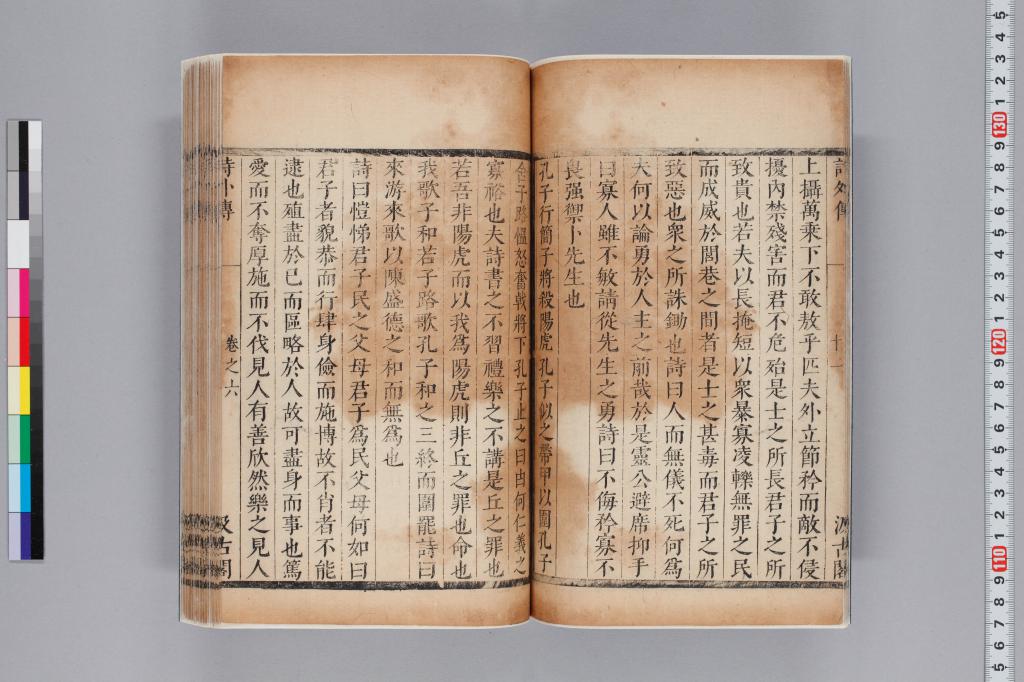 詩外傳
十一
汲古閣
上攝萬乘下不敢敖乎匹夫外立節矜而敵不侵
擾內禁殘害而君不危殆是士之所長君子之所
致貴也若夫以長掩短以衆暴寡凌轢無罪之民
而成威於閭巷之間者是士之甚毒而君子之所
致惡也衆之所誅鋤也詩曰人而無儀不死何爲
夫何以論勇於人主之前哉於是靈公避席抑手
曰寡人雖不敏請從先生之勇詩曰不侮矜寡不
畏强禦卜先生也
孔子行簡子將殺陽虎孔子似之帶甲以圍孔子
舍子路慍怒奮戟將下孔子止之曰由何仁義之
寡裕也夫詩書之不習禮樂之不講是丘之罪也
若吾非陽虎而以我爲陽虎則非丘之罪也命也
我歌子和若子路歌孔子和之三終而圍罷詩曰
來游來歌以陳盛德之和而無爲也
詩曰愷悌君子民之父母君子爲民父母何如曰
君子者貌恭而行肆身儉而施博故不肖者不能
逮也殖盡於已而區略於人故可盡身而事也篤
愛而不奪厚施而不伐見人有善欣然樂之見人
詩外傳
卷之六
汲古閣